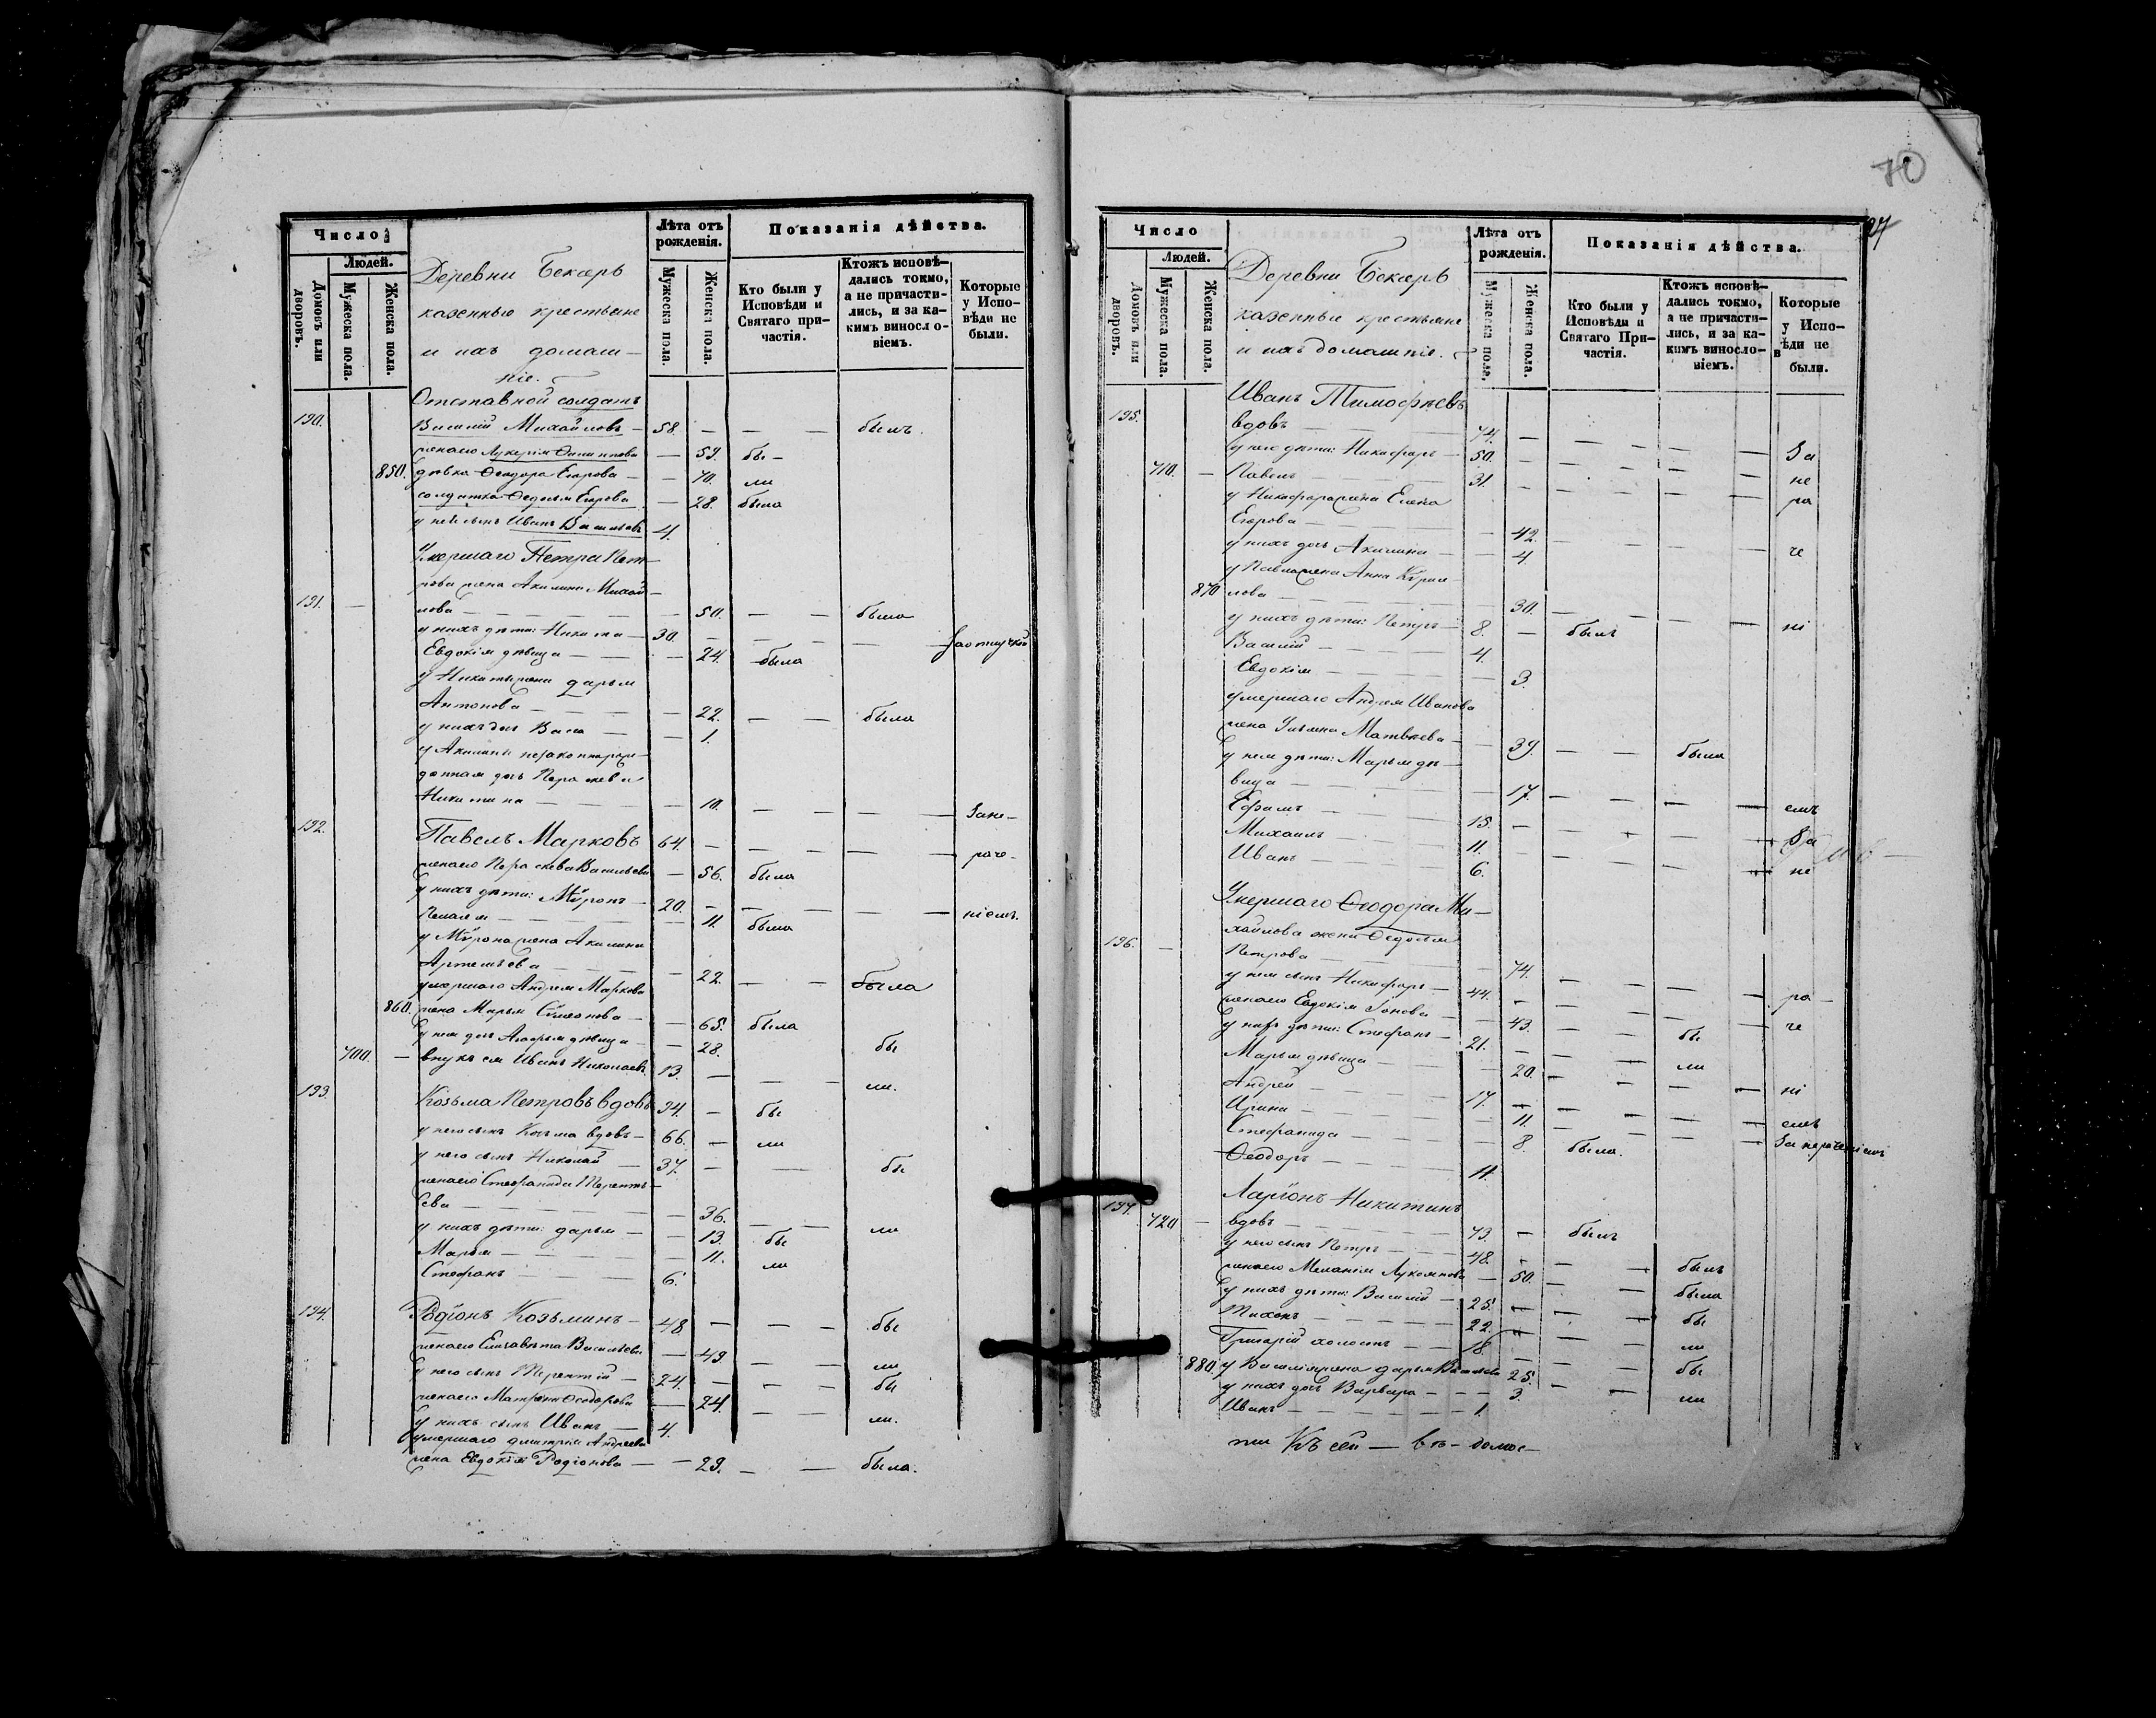 70
Число
Людей.
Домовъ или дворовъ.
Мужеска пола.
Женска пола.
Деревни Бекеръ
казенные крестьяне
и ихъ домаш-
ніе.
Лѣта отъ рожденія.
Мужеска пола.
Женска пола.
Показанія дѣйства.
Кто были у Исповѣди и Святаго причастія.
Ктожъ исповѣ-
дались токмо,
а не причасти-
лись, и за ка-
кимъ винос ло-
віемъ.
Которые
у Испо-
вѣди не
были.
Отставной солдатъ
190. Василій Михайловъ — 58. — — — былъ.
жена его Лукерія Филиппова — 59. бы-
850. дѣвка Ѳеодора Егорова — — 70. ли
солдатка Ѳедосья Егорова — 28. была
у ней сынъ Иванъ Васильевъ 4.
Умершаго Петра Пет-
рова жена Акилина Михай-
191. — лова — — — — 50. — — была
у нихъ дѣти: Никита — 30. — — — —
Евдокія дѣвица — — — 24. была
у Никиты жена Дарья
Антонова — — — — 22. — — была
у нихъ дочь Васа — — 1.
у Акилины незаконнорож-
денная дочь Параскева
Никитина — — — — 10. — — — Зане-
192. Павелъ Марковъ 64. — — — — раче-
жена его Параскева Васильева — 56. была
у нихъ дѣти: Мѵронъ — 20. — — — — ніемъ.
Пелагея — — — — 11. была
у Мѵрона жена Акилина
Артемьева — — — — 22. — — была
умершаго Андрея Маркова
860. жена Марья Сѵмеонова — — 65. была
у нея дочь Агафья дѣвица — — 28. бы
700. — внукъ ея Иванъ Николаевъ. 13. — — — ли.
193. Козьма Петровъ вдовъ 94. — бы
у него сынъ Козьма вдовъ — 66. — ли
у него сынъ Николай — 37. — — бы
жена его Стефанида Терентъ-
ева — — — — 36. — — ли
у нихъ дѣти: Дарья — — 13. бы
Марья — — — — 11. ли
Стефанъ — — 6.
194. Родіонъ Козьминъ — 48. — — — бы
жена его Елизавета Васильева — 49. — — ли
у него сынъ Терентій — 24. — — — бы
жена его Матрона Ѳеодорова — 24. — — ли.
у нихъ сынъ Иванъ — 4.
умершаго Дмитрія Андреева
жена Евдокія Родіонова — — 29. — — была.
Число
Людей.
Домовъ или дворовъ.
Мужеска пола.
Женска пола.
Деревни Бекеръ
казенные крестьяне
и ихъ домашніе.
Лѣта отъ рожденія.
Мужеска пола.
Женска пола.
Показанія дѣйства.
Кто были у Исповѣди и Святаго Причастія.
Ктожъ исповѣ-
дались токмо,
а не причасти-
лись, и за ка-
кимъ винос ло-
віемъ.
Которые
у Испо-
вѣди не
были.
Иванъ Тимофѣевъ
195. вдовъ — — — 74. — — — —
у него дѣти: Никифоръ — 50. — — — — За
710. — Павелъ — — — 31. — — — — не
у Никифора жена Елена
Егорова — — — — 42. — — — — ра
у нихъ дочь Акилина — — 4. че
у Павла жена Анна Кѵрил-
870 лова — — — — 30. — — — —
у нихъ дѣти: Петръ — 8. — былъ ні
Василій — — — 4.
Евдокія — — — — 3.
умершаго Андрея Иванова
жена Ульяна Матвѣева — — 39. — — была
у нея дѣти: Марья дѣ-
вица — — — — 17. — — — — емъ
Ефимъ — — — 15. — — — — За
Михаилъ — — — 11. не
Иванъ — — — 6.
Умершаго Ѳеодора Ми-
хайлова жена Ѳедосья
196. — Петрова — — — — 74. — — — —
у нея сынъ Никифоръ — 44. — — — — ра-
жена его Евдокія Іонова — — 43. — — — — че
у нихъ дѣти: Стефанъ — 21. — — — бы
Марья дѣвица — — — 20. — — ли
Андрей — — — 17. — — — — ні
Ирина — — — — 11. — — — — емъ
Стефанида — — — — 8. была. За нераченіемъ
Ѳеодоръ — — — 11.
Ларіонъ Никитинъ
197. 720 — вдовъ — — — 73. — былъ
у него сынъ Петръ — — 48. — — — былъ
жена его Меланія — 50. — — была
у нихъ дѣти: Василій — 25. — — — бы
Тихонъ — — — 22. — — — ли
Григорій холостъ — — 18. — — — бы
880. у Василія жена Дарья — 25. — — ли
у нихъ дочь Варвара — — — 3.
Иванъ — — — — — 1.
Къ сей — вѣ-домос-